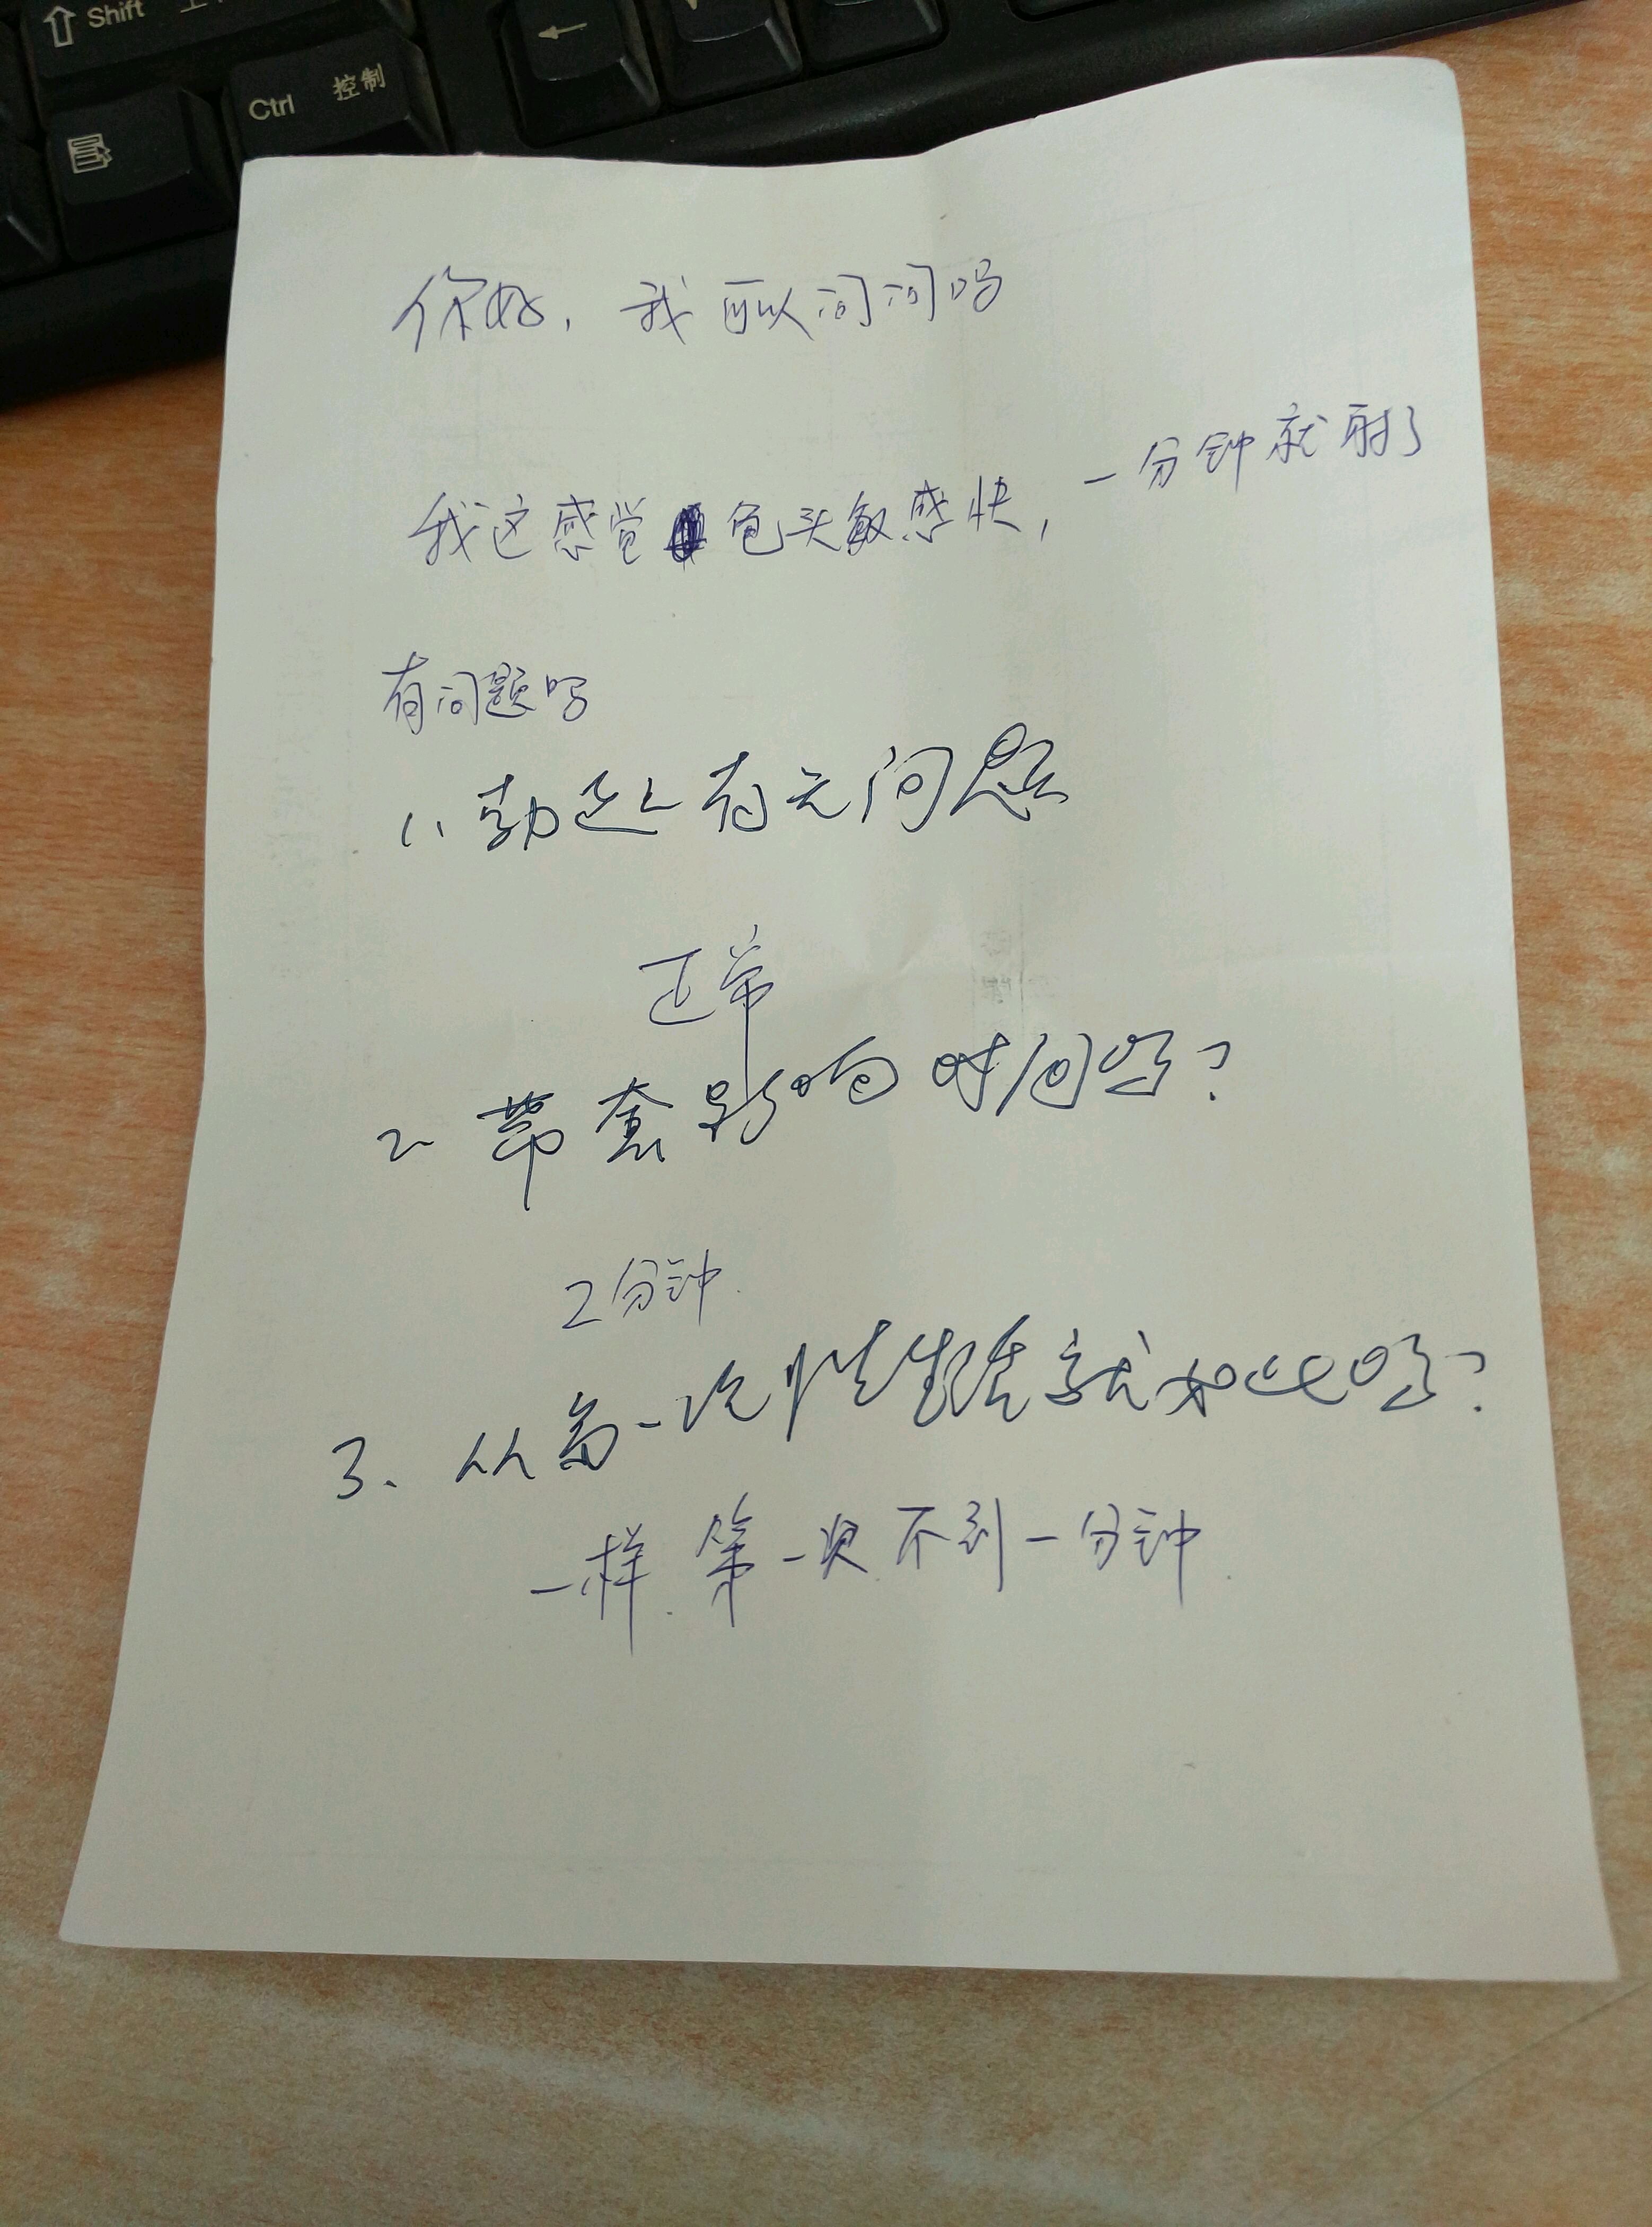 Shift 上
Ctrl 控制
你好，我可以问问吗
一分钟就射了
我这感觉包头敏感快，
有问题吗
1、勃起上有无问题
正常
2、带套影响时间吗？
2分钟.
3、从第一次性生活就如此吗？
一样.第一次不到一分钟.